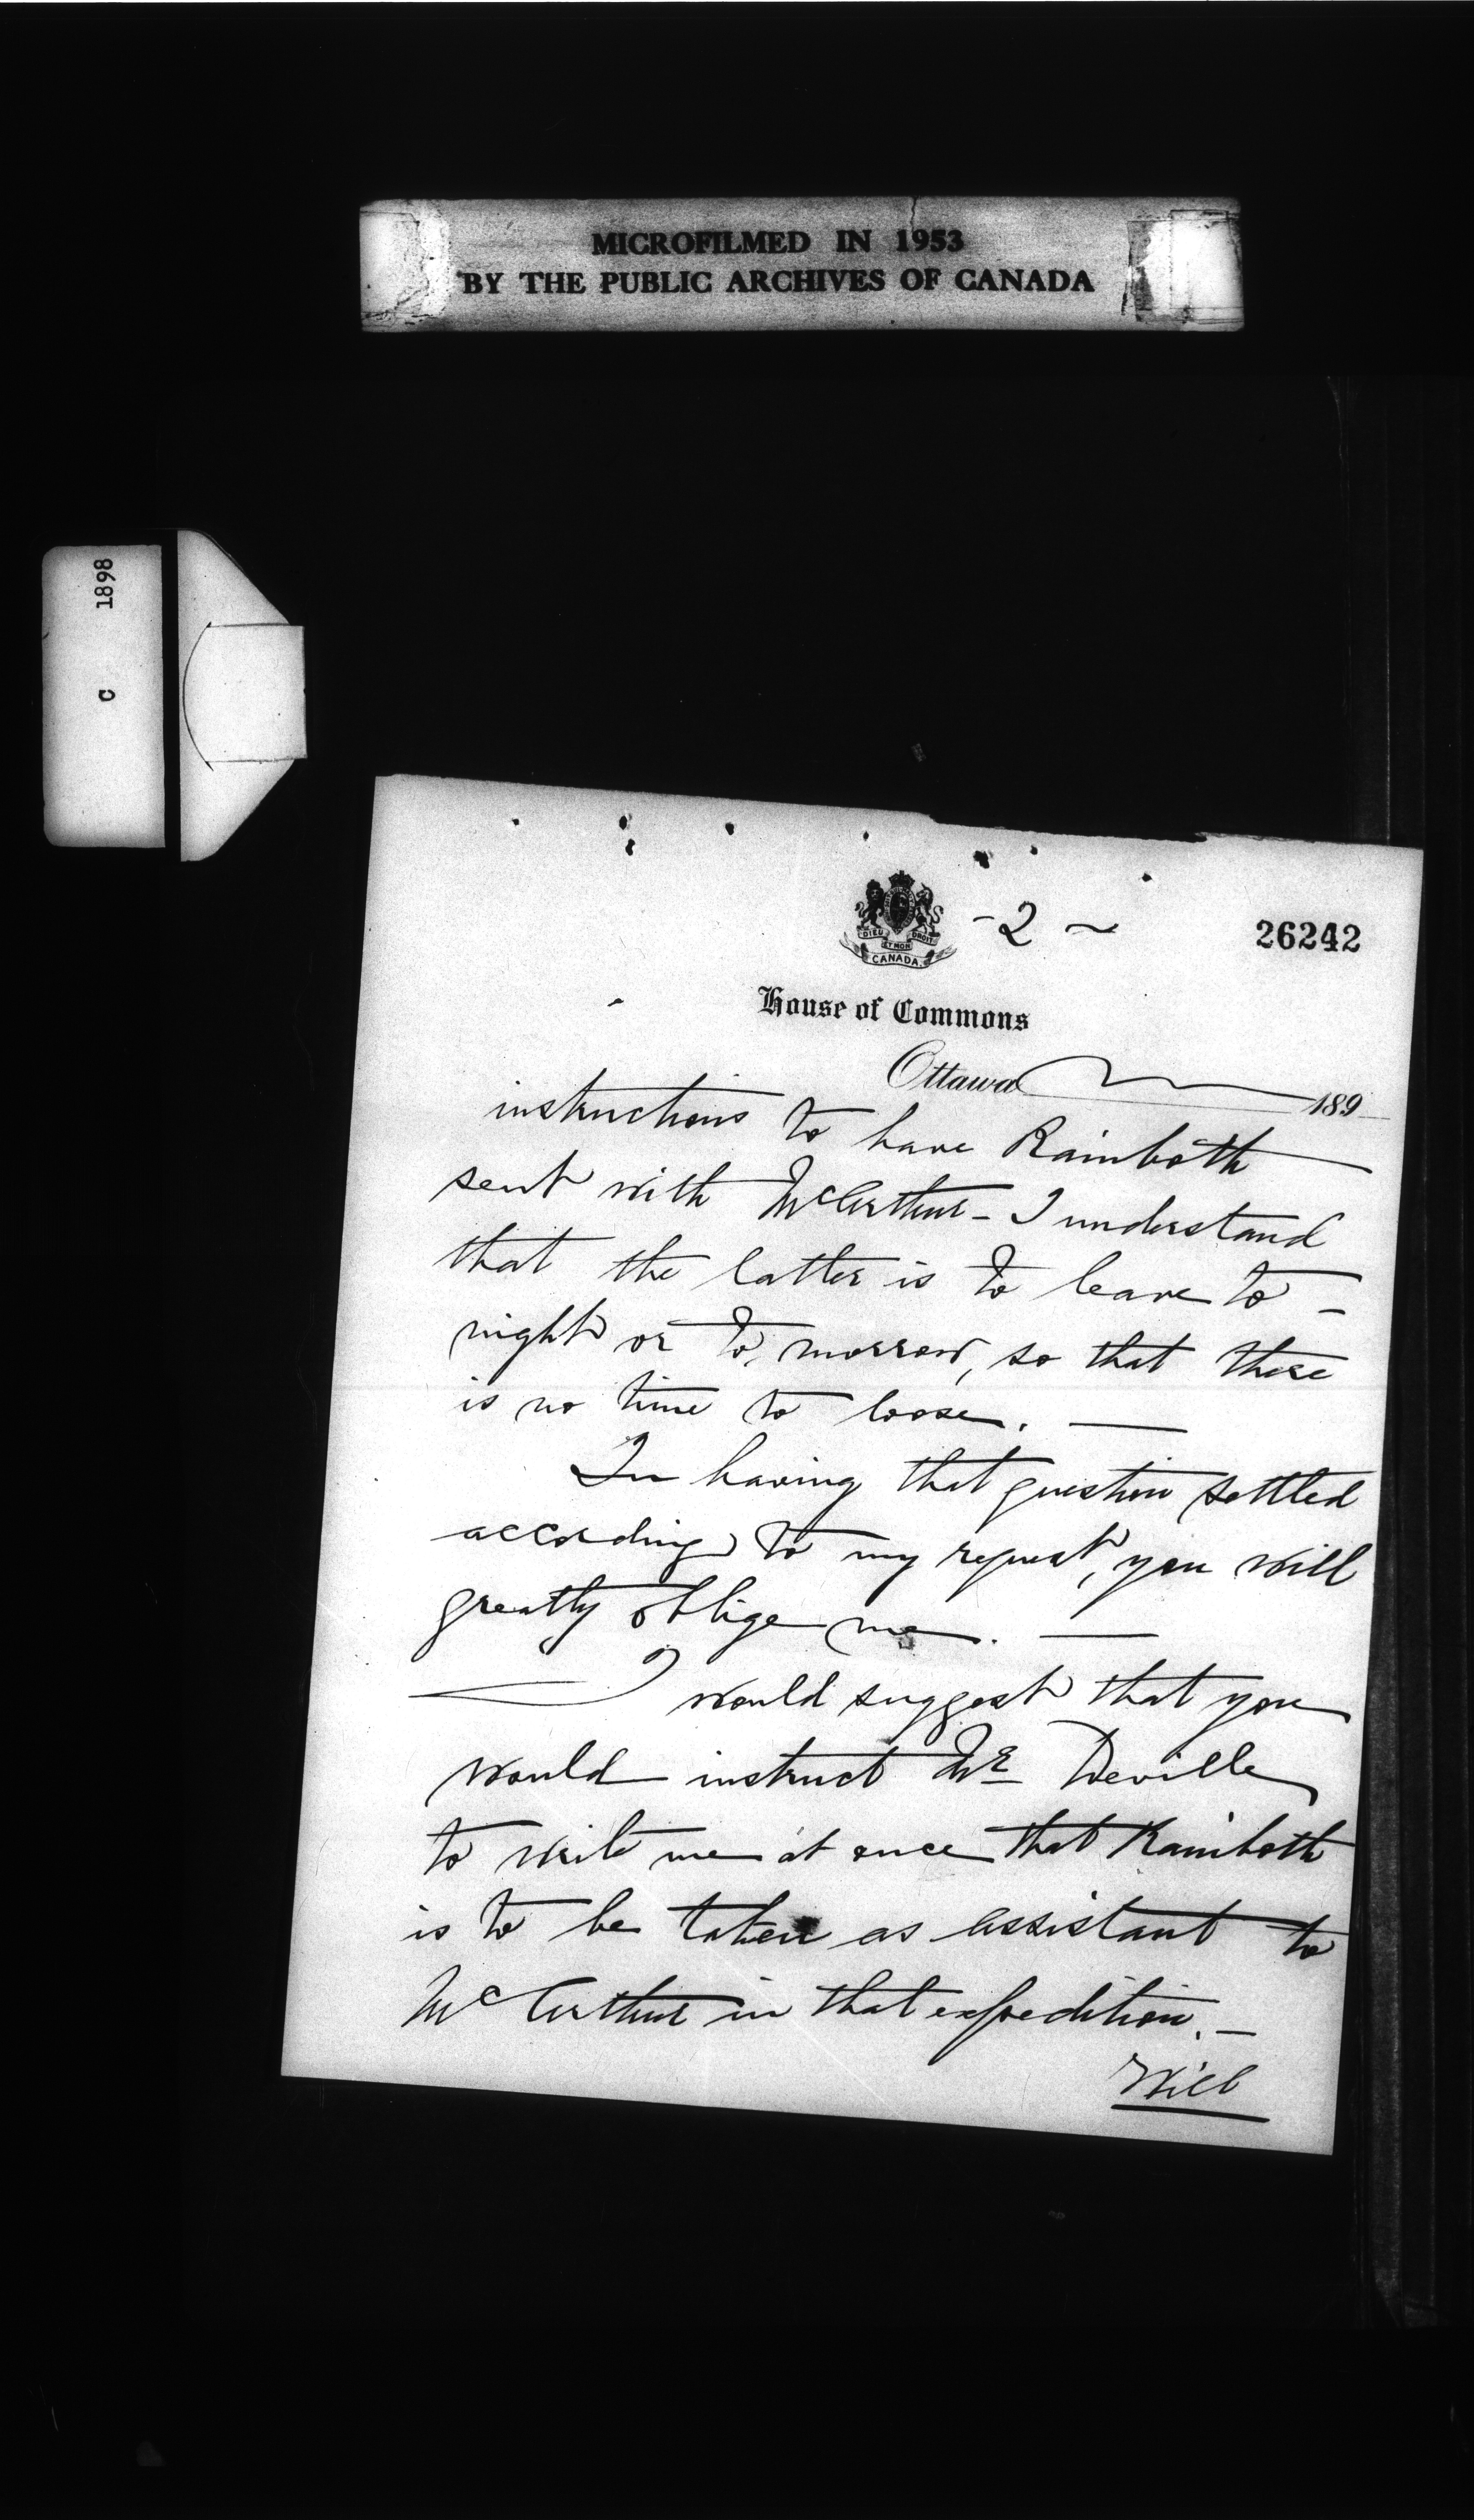 MICROFILMED IN 1953
BY THE PUBLIC ARCHIVES OF CANADA
C 1898
- 2 ~
26242
DIEU ET MON DROIT
CANADA.
House of Commons
Ottawa 189
instructions to have Rainboth
sent with McArthur - I understand
that the latter is to leave to-
night or to morrow, so that there
is no time to loose. —
In having that question settled
according to my request, you will
greatly oblige me. —
I would suggest that you
would instruct Mr Deville
to write me at once that Rainboth
is to be taken as assistant to
McArthur in that expedition. —
Will